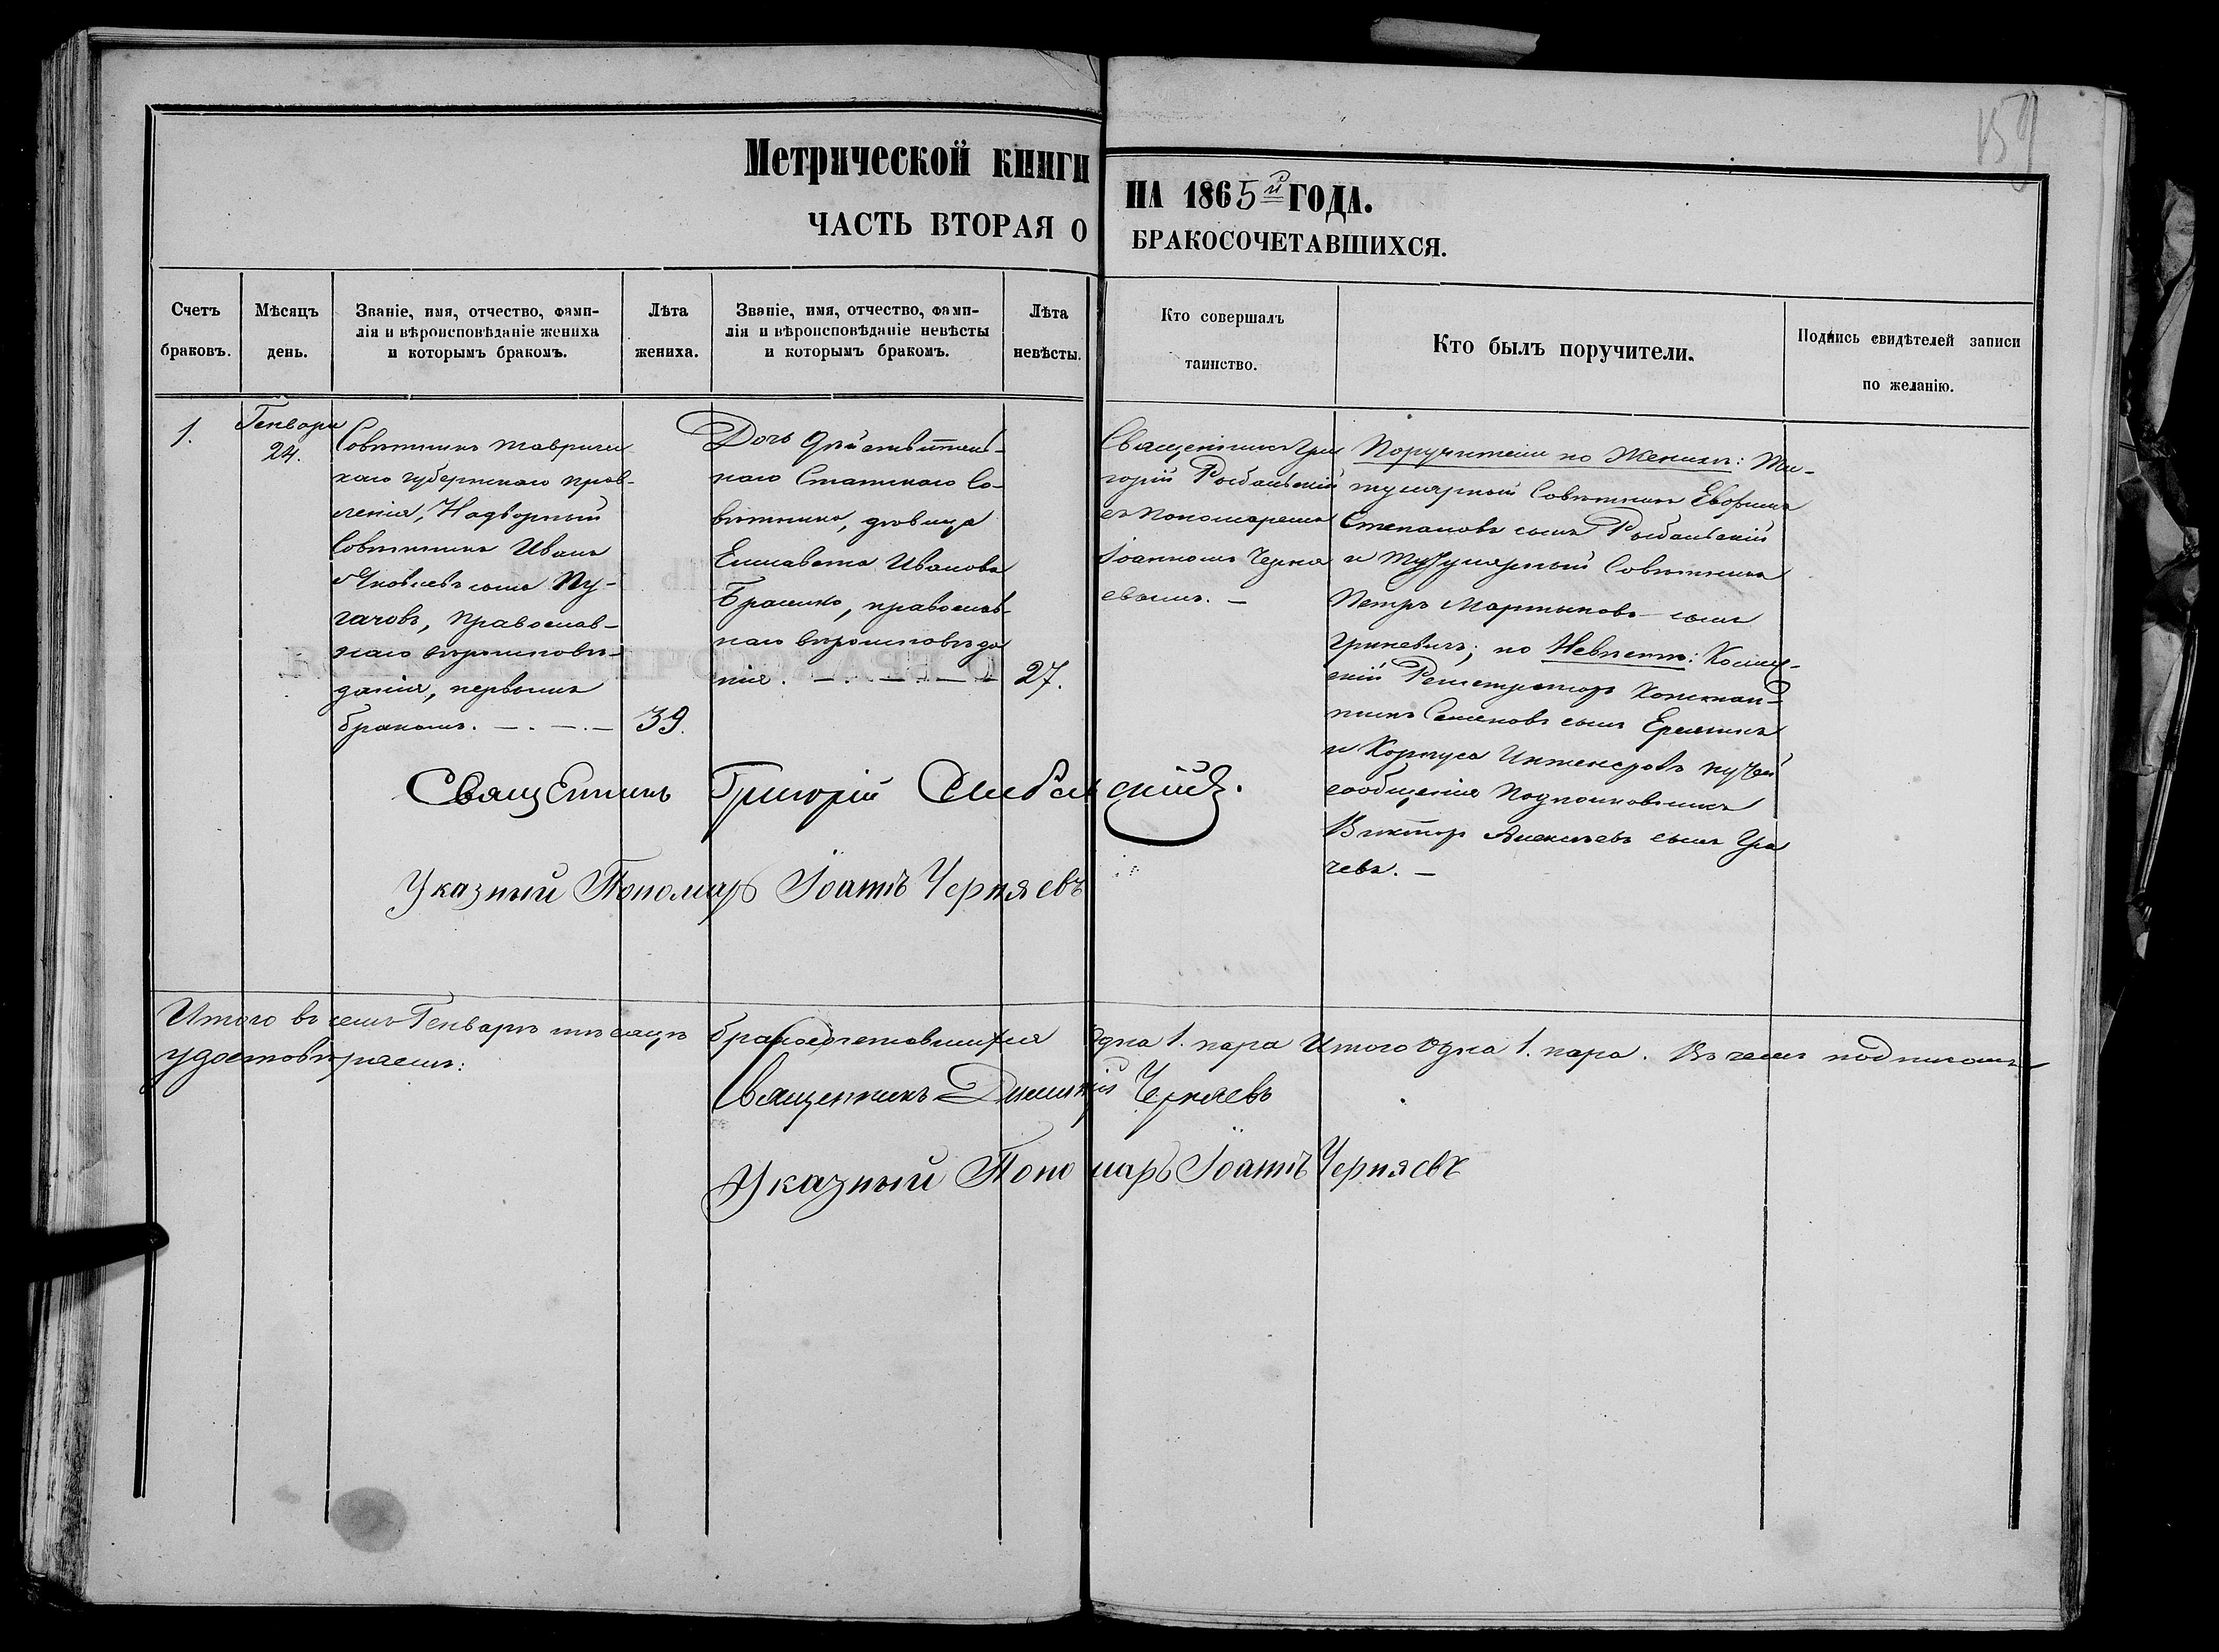 159
Метрической книги на 1865й года.
ЧАСТЬ ВТОРАЯ О БРАКОСОЧЕТАВШИХСЯ.
Счетъ
браковъ.
Мѣсяцъ
день.
Званіе, имя, отчество, фами-
лія и вѣроисповѣданіе жениха
и которымъ бракомъ.
Лѣта
жениха.
Званіе, имя, отчество, фами-
лія и вѣроисповѣданіе невѣсты
и которымъ бракомъ.
Лѣта
невѣсты.
Кто совершалъ
таинство.
Кто былъ поручители.
Подпись свидѣтелей записи
по желанію.
1.
Генваря
24.
Совѣтникъ Тавричес
каго губернскаго прав-
ленія, Надворный
Совѣтникъ Иванъ
Яковлевъ сынъ Пу-
гачовъ, православ-
наго вѣроисповѣ-
данія, первымъ
бракомъ.
39.
Дочь дѣйствитель-
наго Статскаго Со-
вѣтника, дѣвица
Елисавета Иванова
Брашко, православ-
наго вѣроисповѣда
нія.
27.
Священникъ Гри
горій
съ Пономаремъ
Іоанномъ Черня
евымъ.
Поручители по Женихѣ: Ти-
тулярный Совѣтникъ
Степановъ сынъ
и Титулярный Совѣтникъ
Петръ Мартыновъ сынъ
Гриневичъ; по Невѣстѣ: Коллеж-
скій Регистраторъ Констан-
тинъ Семеновъ сынъ
и Корпуса Инженеровъ путей
сообщенія Подполковникъ
Викторъ Алексѣевъ сынъ Гра
чевъ.
Священникъ Григорій
Указный Пономарь Іоаннъ Черняевъ
Итого въ семъ Генварѣ мѣсяцѣ бракосочетавшихся одна 1. пара Итого одна 1. пара. Въ чемъ подписомъ
удостовѣряемъ:
Священникъ Димитрій Черняевъ
Указный Пономарь Іоаннъ Черняевъ